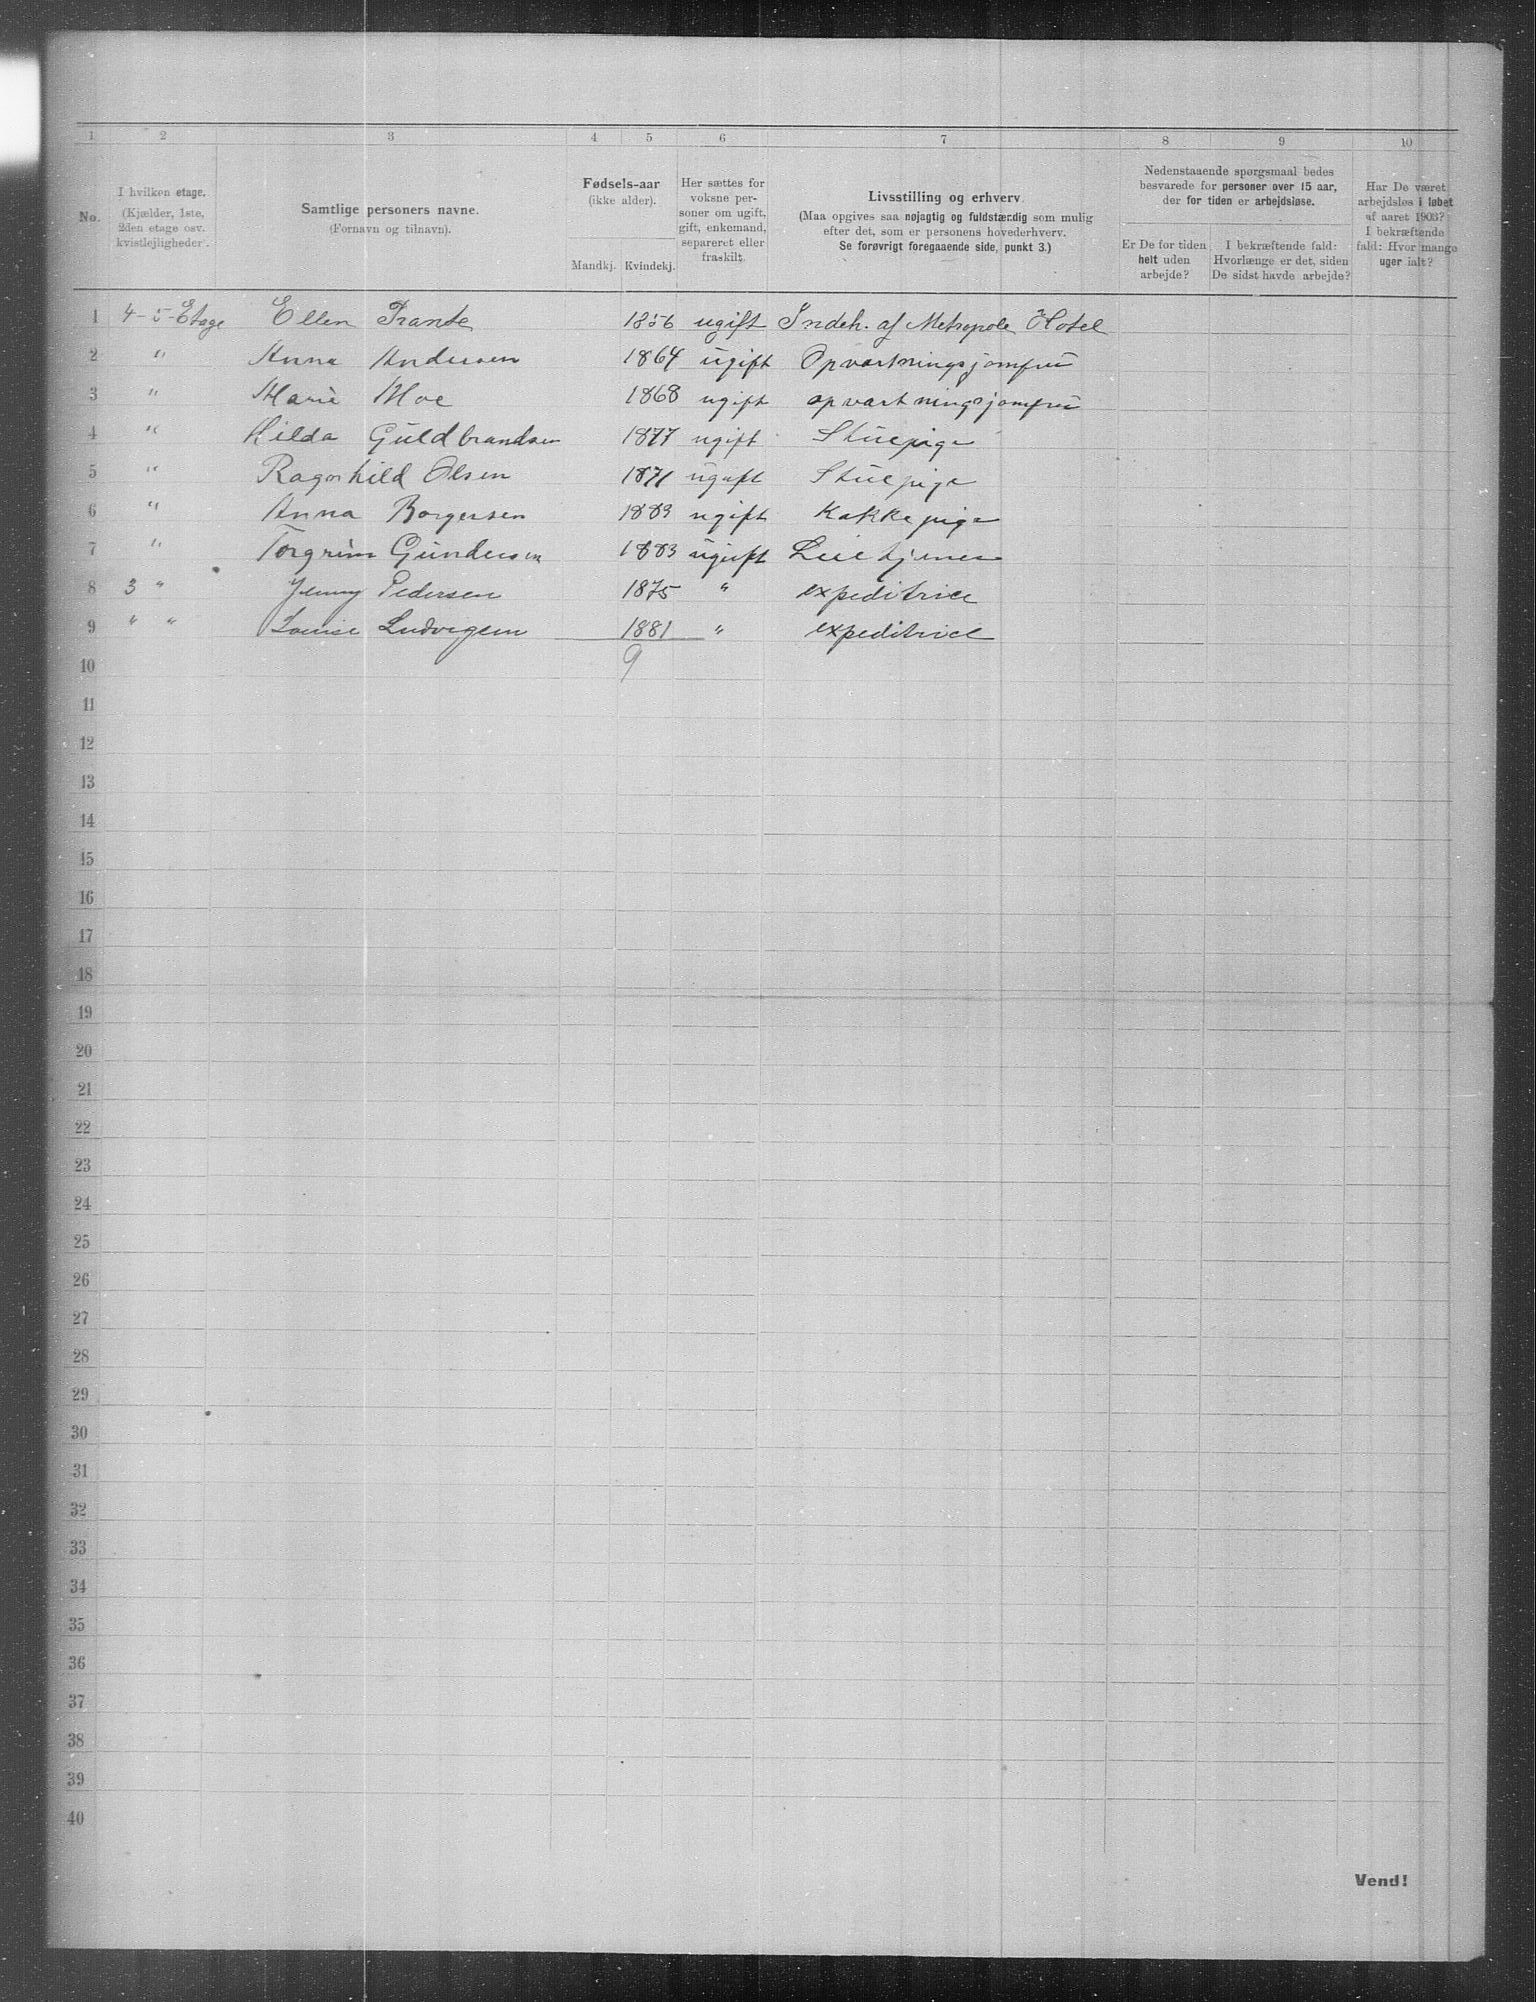 1 2 3 4 5 6 7 8 9 10
No.
I hvilken etage.
(Kjælder, 1ste,
2den etage osv.
kvistlejligheder.
Samtlige personers navne.
(Fornavn og tilnavn).
Fødsels-aar
(ikke alder).
Mandkj. Kvindekj.
Her sættes for
voksne per-
soner om ugift,
gift, enkemand,
separeret eller
fraskilt.
Livsstilling og erhverv.
(Maa opgives saa nøjagtig og fuldstændig som mulig
efter det, som er personens hovederhverv.
Se forøvrigt foregaaende side, punkt 3.)
Nedenstaaende spørgsmaal bedes
besvarede for personer over 15 aar,
der for tiden er arbejdsløse.
Er De for tiden
helt uden
arbejde?
I bekræftende fald:
Hvorlænge er det, siden
De sidst havde arbejde?
Har De været
arbejdsløs i løbet
af aaret 1903?
I bekræftende
fald: Hvor mange
uger ialt?
1 4-5-Etage Ellen 1856 ugift Indeh. af Metropole Hotel
2 " Anna Andersen 1864 ugift Opvartningsjomfru
3 " Marie Moe 1868 ugift opvartningsjomfru
4 " Hilda Guldbrandsen 1877 ugift Stuepige
5 " Ragnhild Olsen 1871 ugift Stuepige
6 " Anna Borgersen 1883 ugift Kokkepige
7 " Torgrim Gundersen 1883 ugift
8 3 " Jenny Pedersen 1875 " expeditrice
9 " " Louise Ludvigsen 1881 " expeditrice
10 9
11
12
13
14
15
16
17
18
19
20
21
22
23
24
25
26
27
28
29
30
31
32
33
34
35
36
37
38
39
40
Vend!